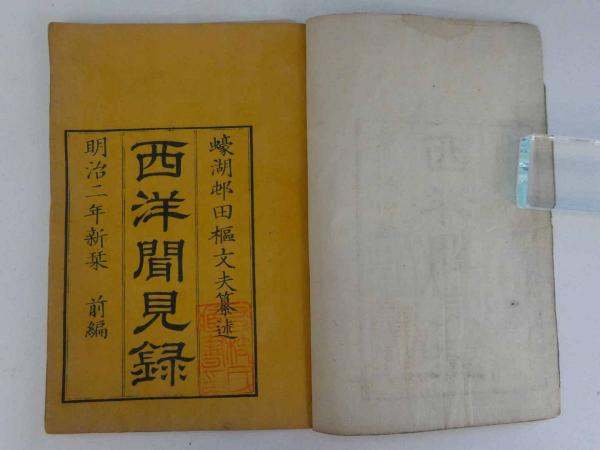 蠔湖邨田樞文夫纂述
西洋聞見録
明治二年新栞 前編